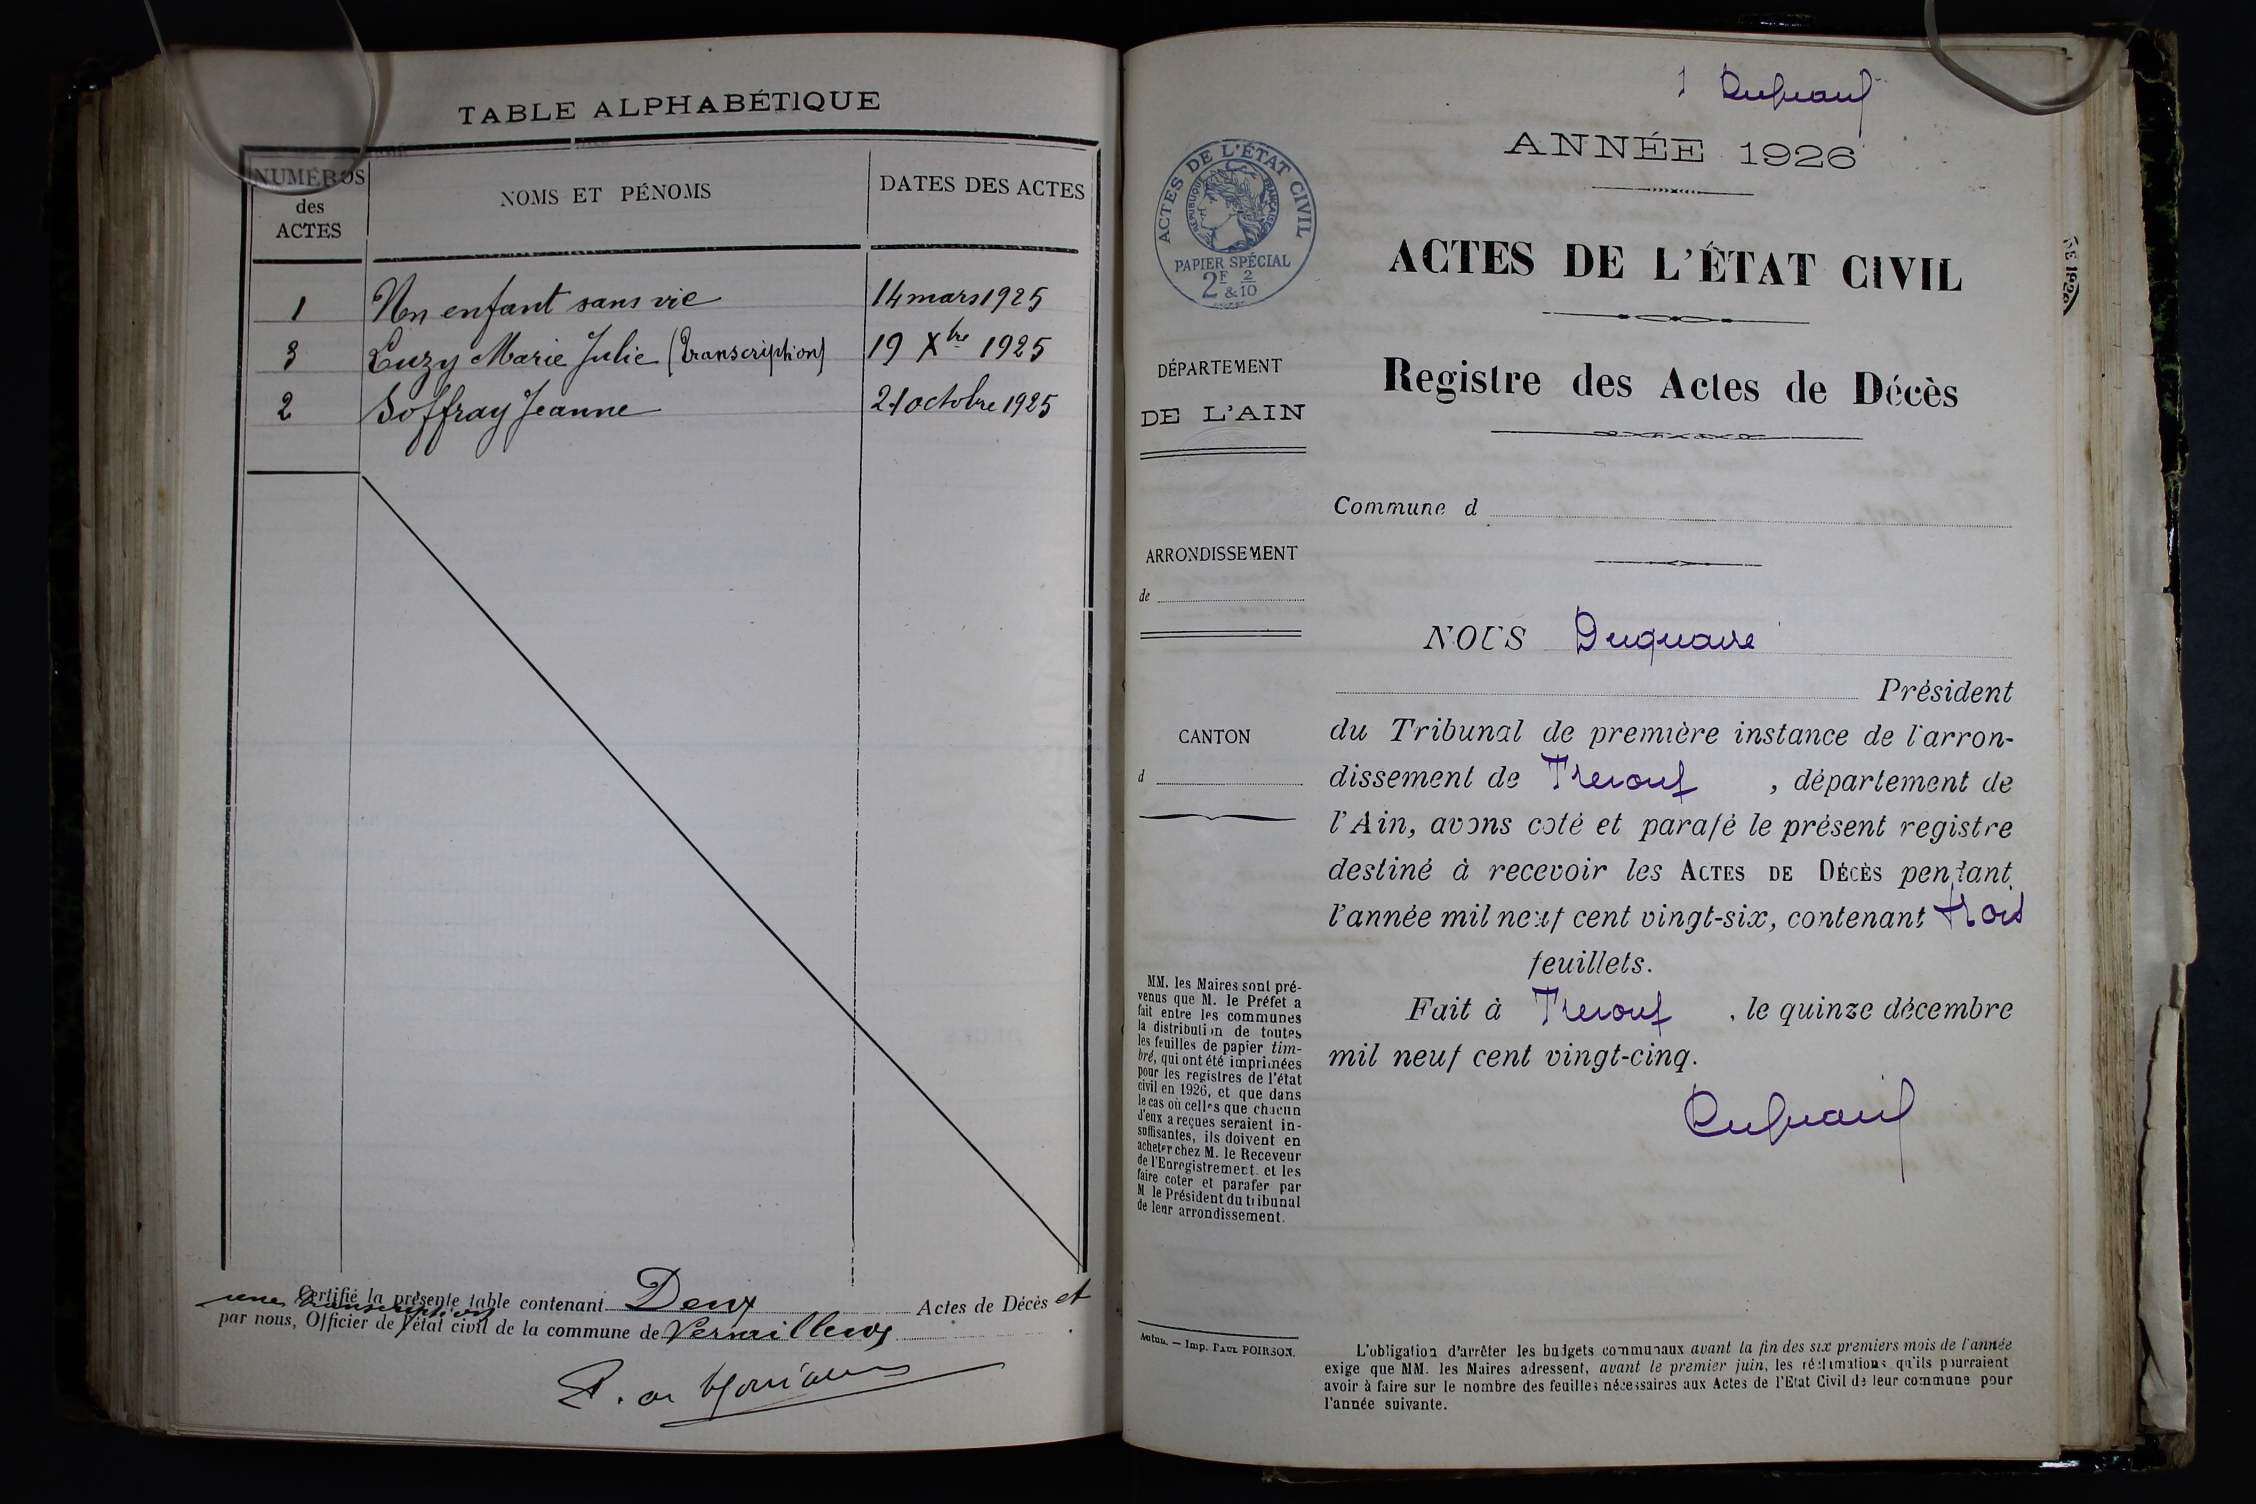 TABLE ALPHABÉTIQUE
NUMÉROS des ACTES
NOMS ET PÉNOMS
DATES DES ACTES
1 Un enfant sans vie 14 mars 1925
3 Luzy Marie Julie (Transcription) 19 Xbre 1925
2 Soffray Jeanne 21 octobre 1925
Certifié la présente table contenant Deux Actes de Décès et
une transcription
par nous, Officier de l'état civil de la commune de Versailleux
1
ANNÉE 1926
ACTES DE L'ÉTAT CIVIL
RÉPUBLIQUE FRANÇAISE
PAPIER SPÉCIAL
2F & 2/10
ACTES DE L'ÉTAT CIVIL
Registre des Actes de Décès
DÉPARTEMENT
DE L'AIN
Commune d
ARRONDISSEMENT
de
CANTON
d
NOUS Duquaire
Président
du Tribunal de première instance de l'arron-
dissement de Trevoux, département de
l'Ain, avons coté et parafé le présent registre
destiné à recevoir les ACTES DE DÉCÈS pendant
l'année mil neuf cent vingt-six, contenant trois
feuillets.
Fait à Trevoux, le quinze décembre
mil neuf cent vingt-cinq.
MM. les Maires sont pré-
venus que M. le Préfet a
fait entre les communes
la distribution de toutes
les feuilles de papier tim-
bré, qui ont été imprimées
pour les registres de l'état
civil en 1926, et que dans
le cas où celles que chacun
d'eux a reçues seraient in-
suffisantes, ils doivent en
acheter chez M. le Receveur
de l'Enregistrement et les
faire coter et parafer par
M le Président du tribunal
de leur arrondissement.
Autun. — Imp. PAUL POIRSON.
L'obligation d'arrêter les budgets communaux avant la fin des six premiers mois de l'année
exige que MM. les Maires adressent, avant le premier juin, les réclamations qu'ils pourraient
avoir à faire sur le nombre des feuilles nécessaires aux Actes de l'Etat Civil de leur commune pour
l'année suivante.